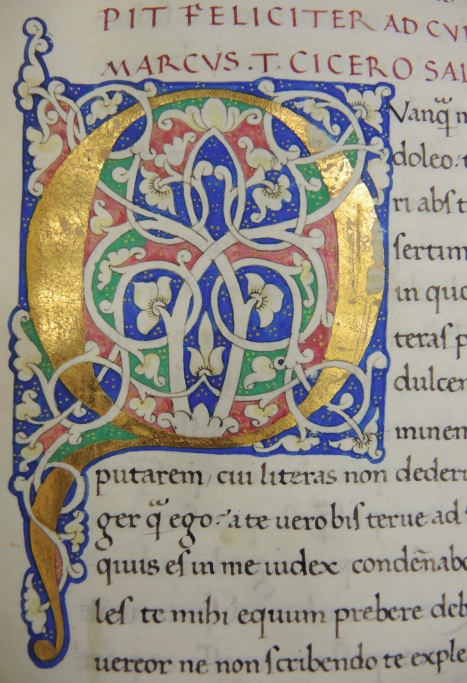 PIT FELICITER AD CV
MARCVS . T. CICERO SAL
Q Vanq̃ m
doleo . t
ri abs t
sertim
in quo
teras p
dulcer
minem
putarem , cui literas non dederi
ger q̃ ego . a te uero bis terue ad
quius es in me iudex condẽnabo
les te mihi equum prebere deb
uereor ne non scribendo te exple